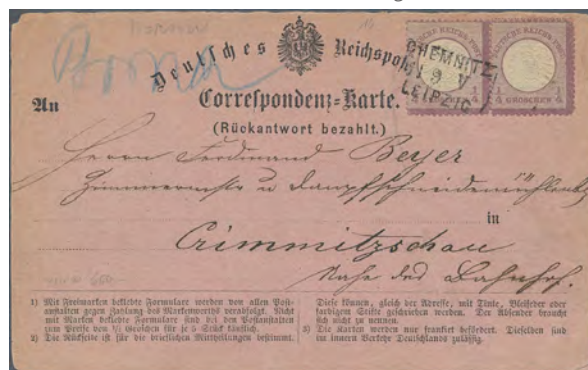 Deutsches Reichspost
DEUTSCHE REICHS-POST
DEUTSCHE REICHS-POST
1/4 1/4
GROSCHEN
1/4 1/4
GROSCHEN
CHEMNITZ
9 V
LEIPZIG
An
Correspondenz-Karte.
(Rückantwort bezahlt.)
Herrn Ferdinand Beyer
Zimmermstr u Dampfschneidemühlenbs
in
Crimmitzschau
Nahe des Bahnhof.
1) Mit Freimarken beklebte Formulare werden von allen Post-
anstalten gegen Zahlung des Markenwerths verabfolgt. Nicht
mit Marken beklebte Formulare sind bei den Postanstalten
zum Preise von 1/2 Groschen für je 5 Stück käuflich.
2) Die Rückseite ist für die brieflichen Mittheilungen bestimmt.
Diese können, gleich der Adresse, mit Tinte, Bleifeder oder
farbigem Stifte geschrieben werden. Der Absender braucht
sich nicht zu nennen.
3) Die Karten werden nur frankirt befördert. Dieselben sind
im innern Verkehr Deutschlands zulässig.